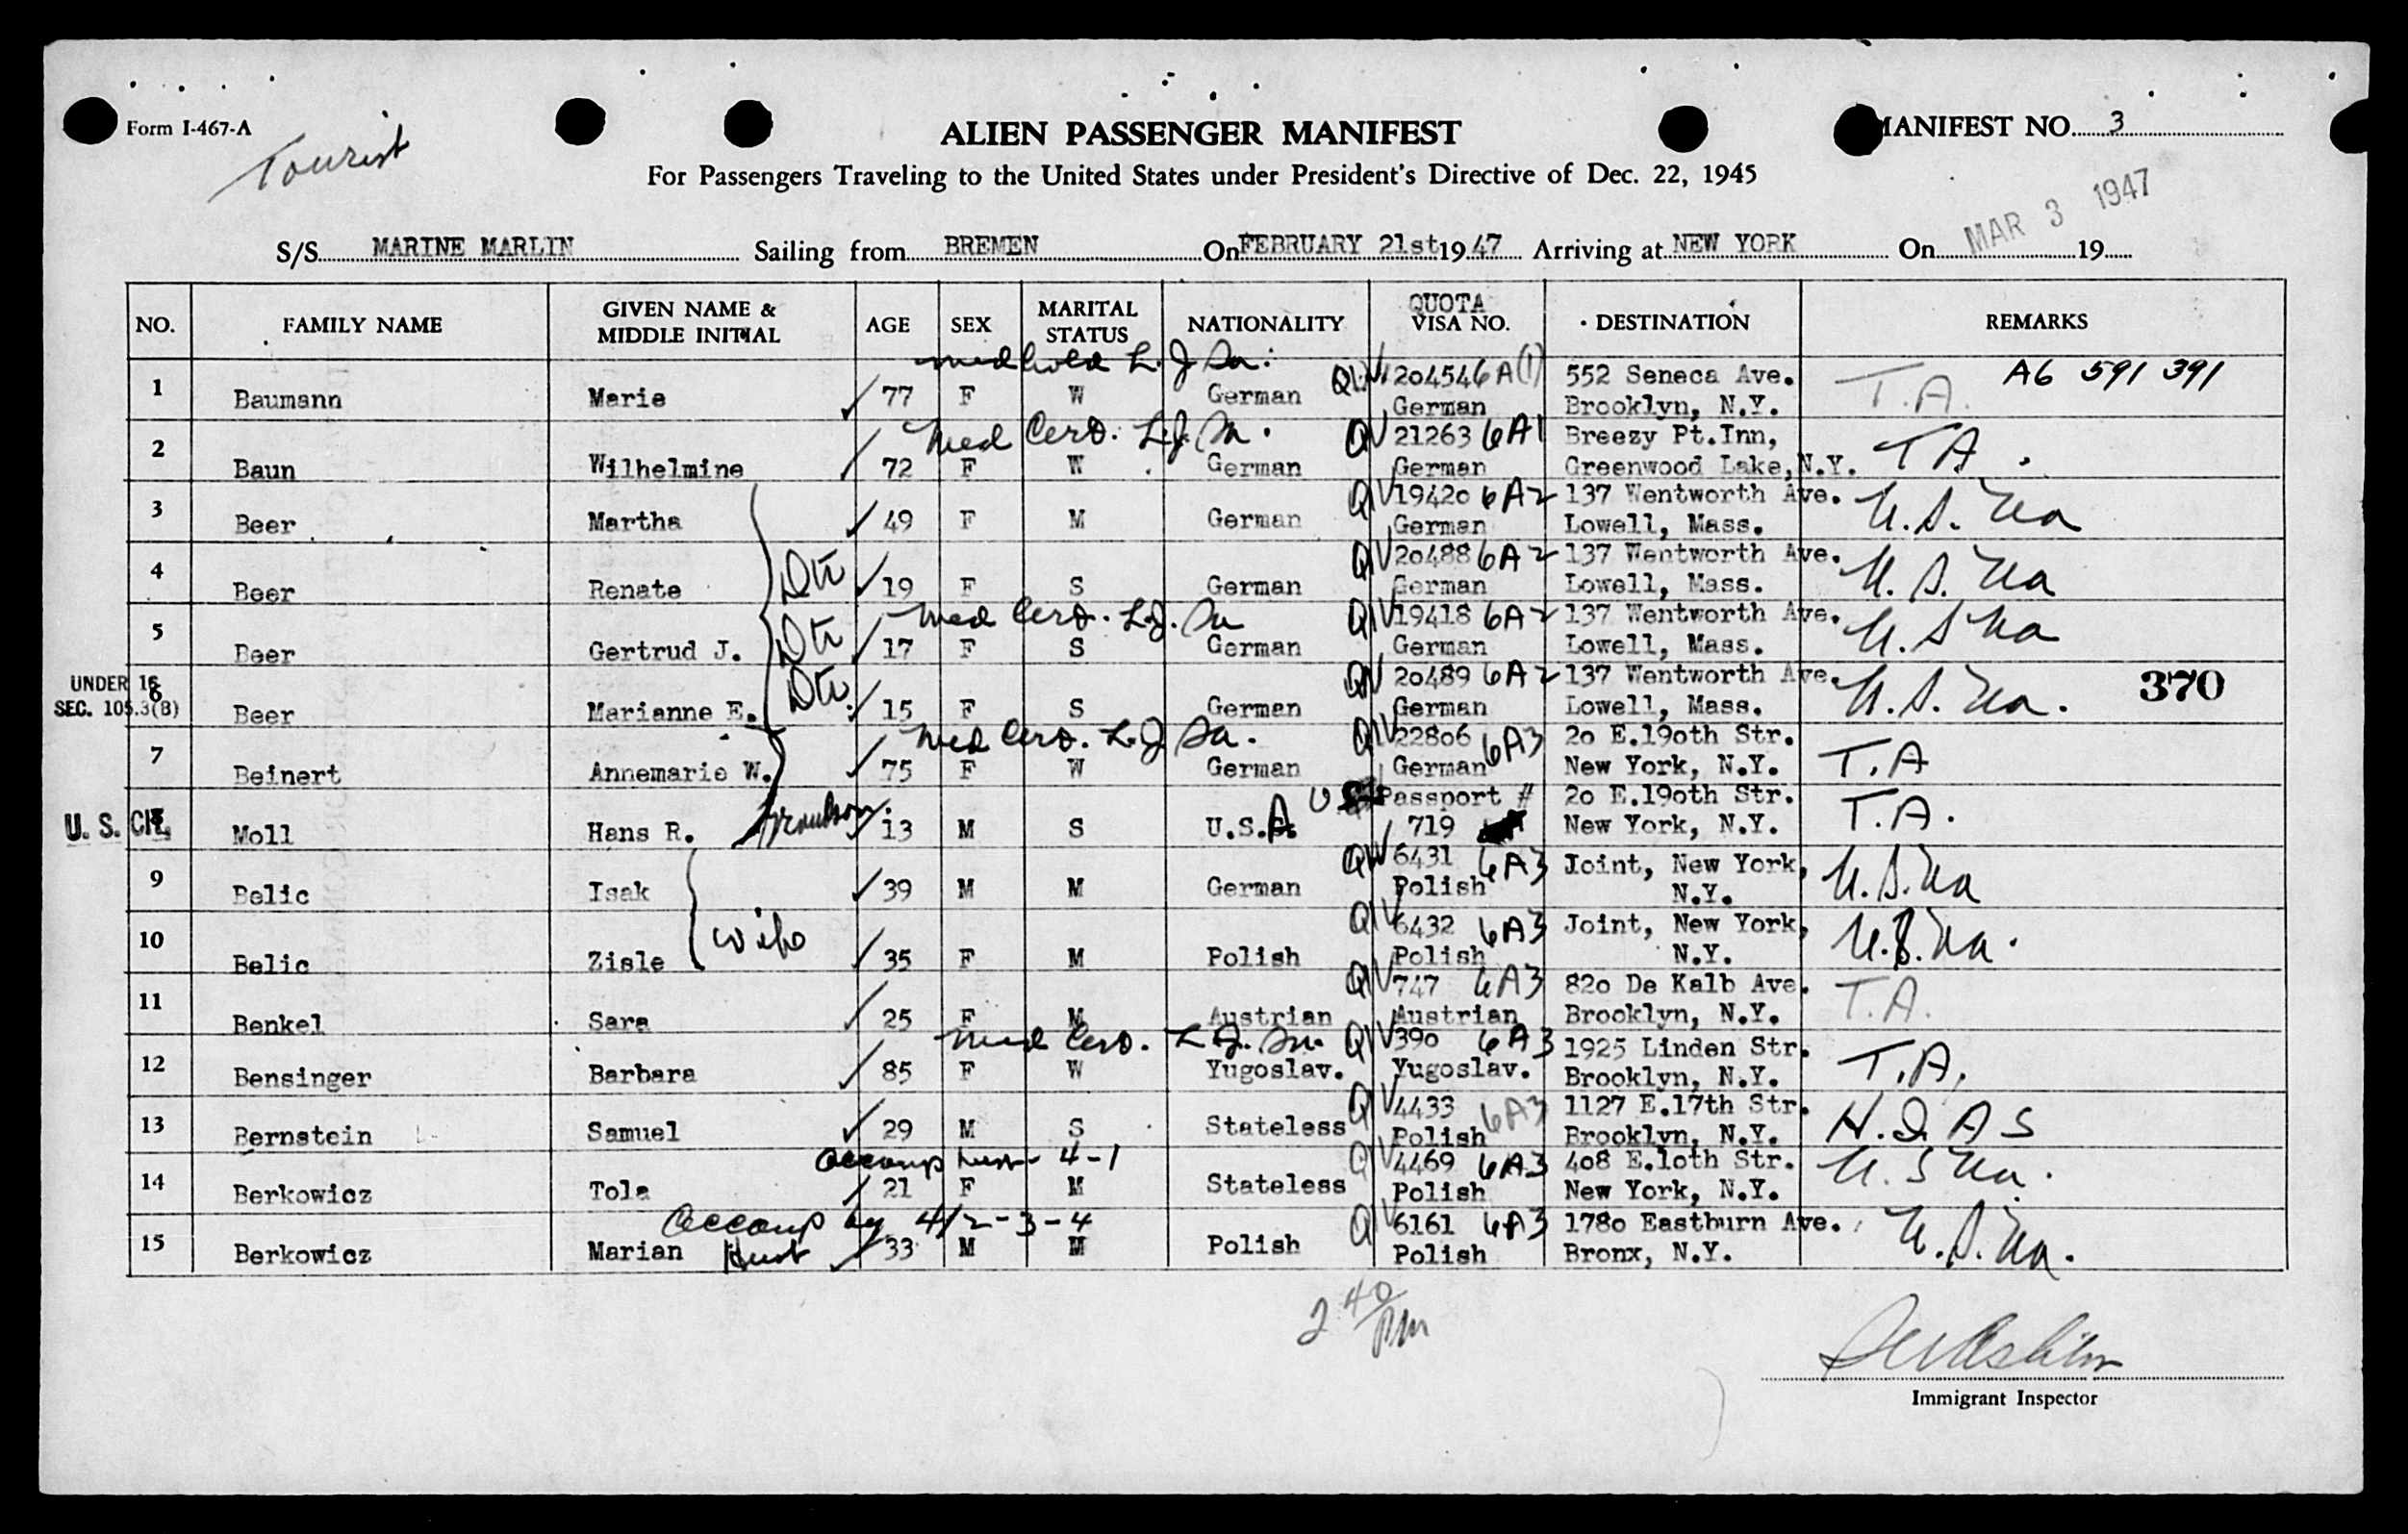 Form I-467-A
Tourist
ALIEN PASSENGER MANIFEST
MANIFEST NO. 3
For Passengers Traveling to the United States under President's Directive of Dec. 22, 1945
MAR 3 1947
S/S MARINE MARLIN Sailing from BREMEN On FEBRUARY 21st 1947 Arriving at NEW YORK On 19
NO. FAMILY NAME GIVEN NAME & MIDDLE INITIAL AGE SEX MARITAL STATUS NATIONALITY QUOTA VISA NO. DESTINATION REMARKS
med hold L. J. Sa.
1 Baumann Marie 77 F W German QIV 204546A(1) 552 Seneca Ave. T.A. A6 591 391
German Brooklyn, N.Y.
Med Cert. L.J. Sa.
2 Baun Wilhelmine 72 F W German QIV 21263 6A1 Breezy Pt.Inn, T A.
German Greenwood Lake,N.Y.
3 Beer Martha 49 F M German QIV 19420 6A2 137 Wentworth Ave. U.S. Na
German Lowell, Mass.
4 Beer Renate Dtr 19 F S German QIV 20488 6A2 137 Wentworth Ave. U.S. Na
German Lowell, Mass.
Med Cert. L.J. Sa
5 Beer Gertrud J. Dtr 17 F S German QIV 19418 6A2 137 Wentworth Ave. U.S Na
German Lowell, Mass.
UNDER 16
SEC. 105.3(B)
6 Beer Marianne E. Dtr. 15 F S German QIV 20489 6A2 137 Wentworth Ave. U.S. Na. 370
German Lowell, Mass.
Med Cert. L.J Sa.
7 Beinert Annemarie W. 75 F W German QIV 22806 6A3 20 E.190th Str. T.A
German New York, N.Y.
U. S. CIT.
8 Moll Hans R. Grandson. 13 M S U.S.A. US Passport # 20 E.190th Str. T.A.
719 New York, N.Y.
9 Belic Isak 39 M M German QIV 6431 6A3 Joint, New York, U.S.Na
Polish N.Y.
10 Belic Zisle wife 35 F M Polish QIV 6432 6A3 Joint, New York, U.S.Na.
Polish N.Y.
11 Benkel Sara 25 F M Austrian QIV 747 6A3 820 De Kalb Ave. T.A.
Austrian Brooklyn, N.Y.
Med Cert. L.J. Sa.
12 Bensinger Barbara 85 F W Yugoslav. QIV 390 6A3 1925 Linden Str. T.A.
Yugoslav. Brooklyn, N.Y.
13 Bernstein Samuel 29 M S Stateless QIV 4433 6A3 1127 E.17th Str. H.I A S
Polish Brooklyn, N.Y.
Accomp 4-1
14 Berkowicz Tola 21 F M Stateless QIV 4469 6A3 408 E.10th Str. U.S Na.
Polish New York, N.Y.
Accomp by 4/2-3-4
15 Berkowicz Marian Husb 33 M M Polish QIV 6161 6A3 1780 Eastburn Ave. U.S.Na.
Polish Bronx, N.Y.
2 40/PM
Immigrant Inspector